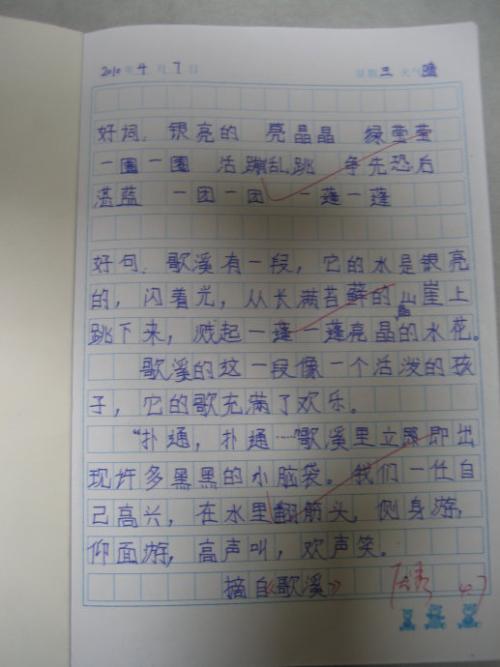 2010年4月7日 星期三 天气晴
好词：银亮的 亮晶晶 绿莹莹
一圈一圈 活蹦乱跳 争先恐后
湛蓝 一团一团 一蓬一蓬
好句：歌溪有一段，它的水是银亮
的，闪着光，从长满苔藓的山崖上
跳下来，溅起一蓬一蓬亮晶的水花。
歌溪的这一段像一个活泼的孩
子，它的歌充满了欢乐。
“扑通，扑通……”歌溪里立即出
现许多黑黑的小脑袋。我们一任自
己高兴，在水里翻筋头，侧身游，
仰面游，高声叫，欢声笑。
摘自《歌溪》
4.7